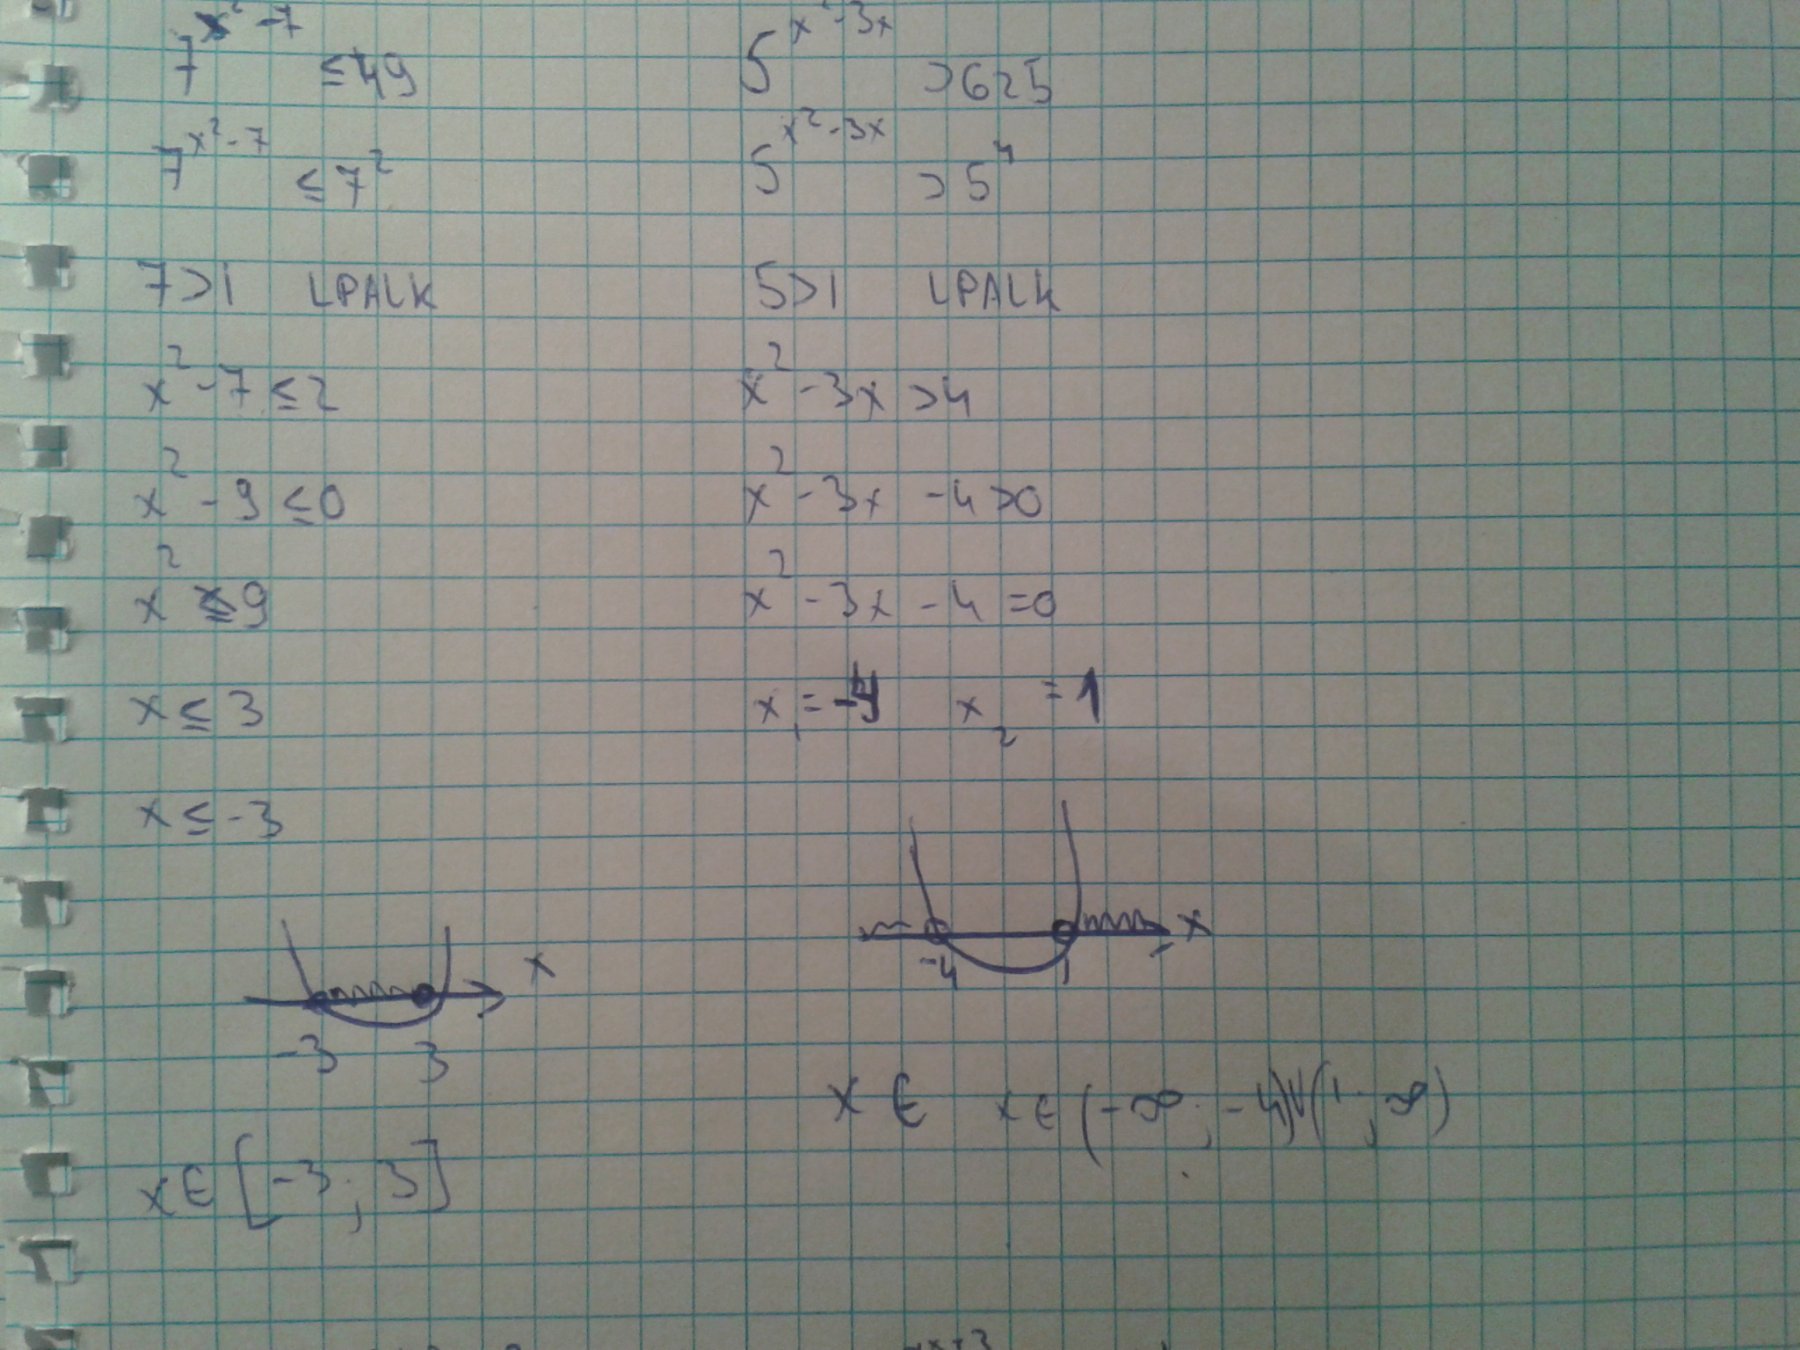 7^(x²-7) ≤ 49
7^(x²-7) ≤ 7²
7>1 LPALK
x²-7 ≤ 2
x²-9 ≤ 0
x² ≤ 9
x ≤ 3
x ≤ -3
x
-3 3
x ∈ [-3; 3]
5^(x²-3x) > 625
5^(x²-3x) > 5⁴
5>1 LPALK
x²-3x > 4
x²-3x-4 > 0
x²-3x-4 = 0
x₁ = -4 x₂ = 1
x
-4 1
x ∈ x ∈ (-∞; -4) ∪ (1; ∞)